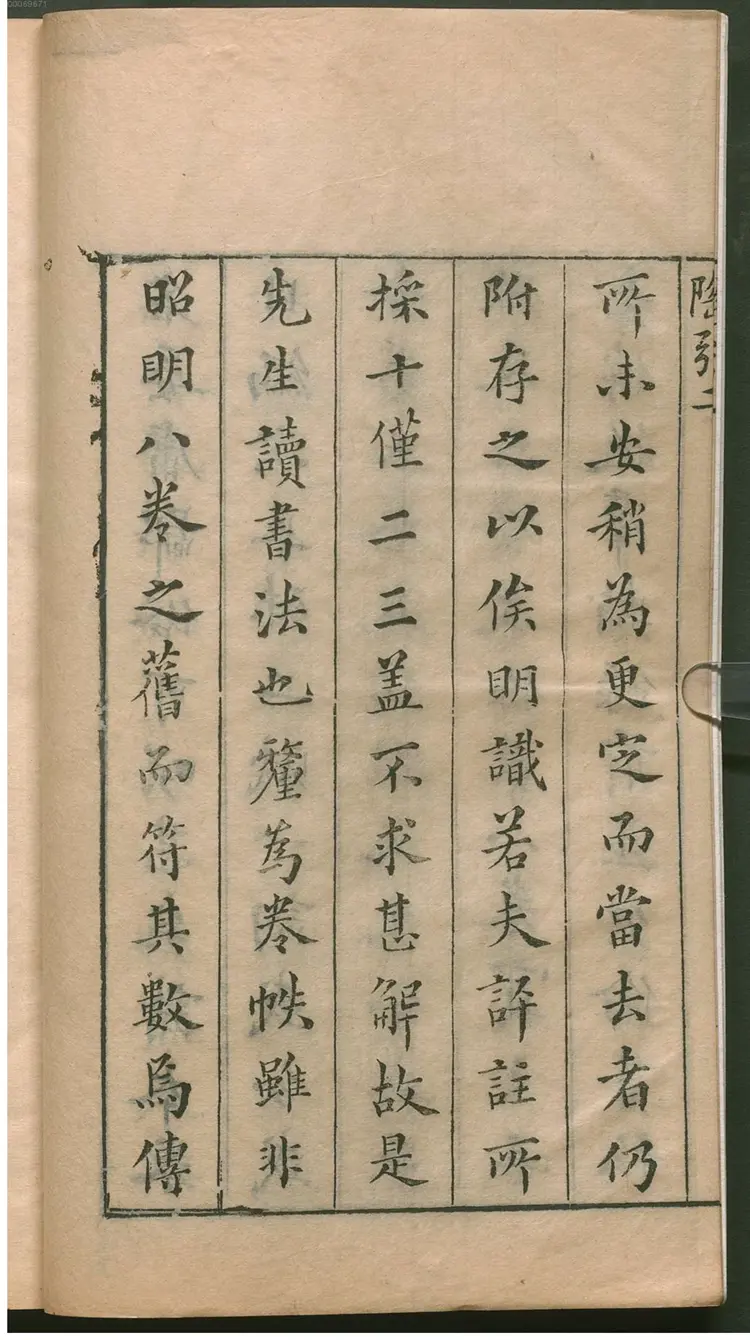 陶引二
所未安稍為更定而當去者仍
附存之以俟明識若夫評註所
採十僅二三盖不求甚解故是
先生讀書法也釐為卷帙雖非
昭明八卷之舊而符其數焉傳